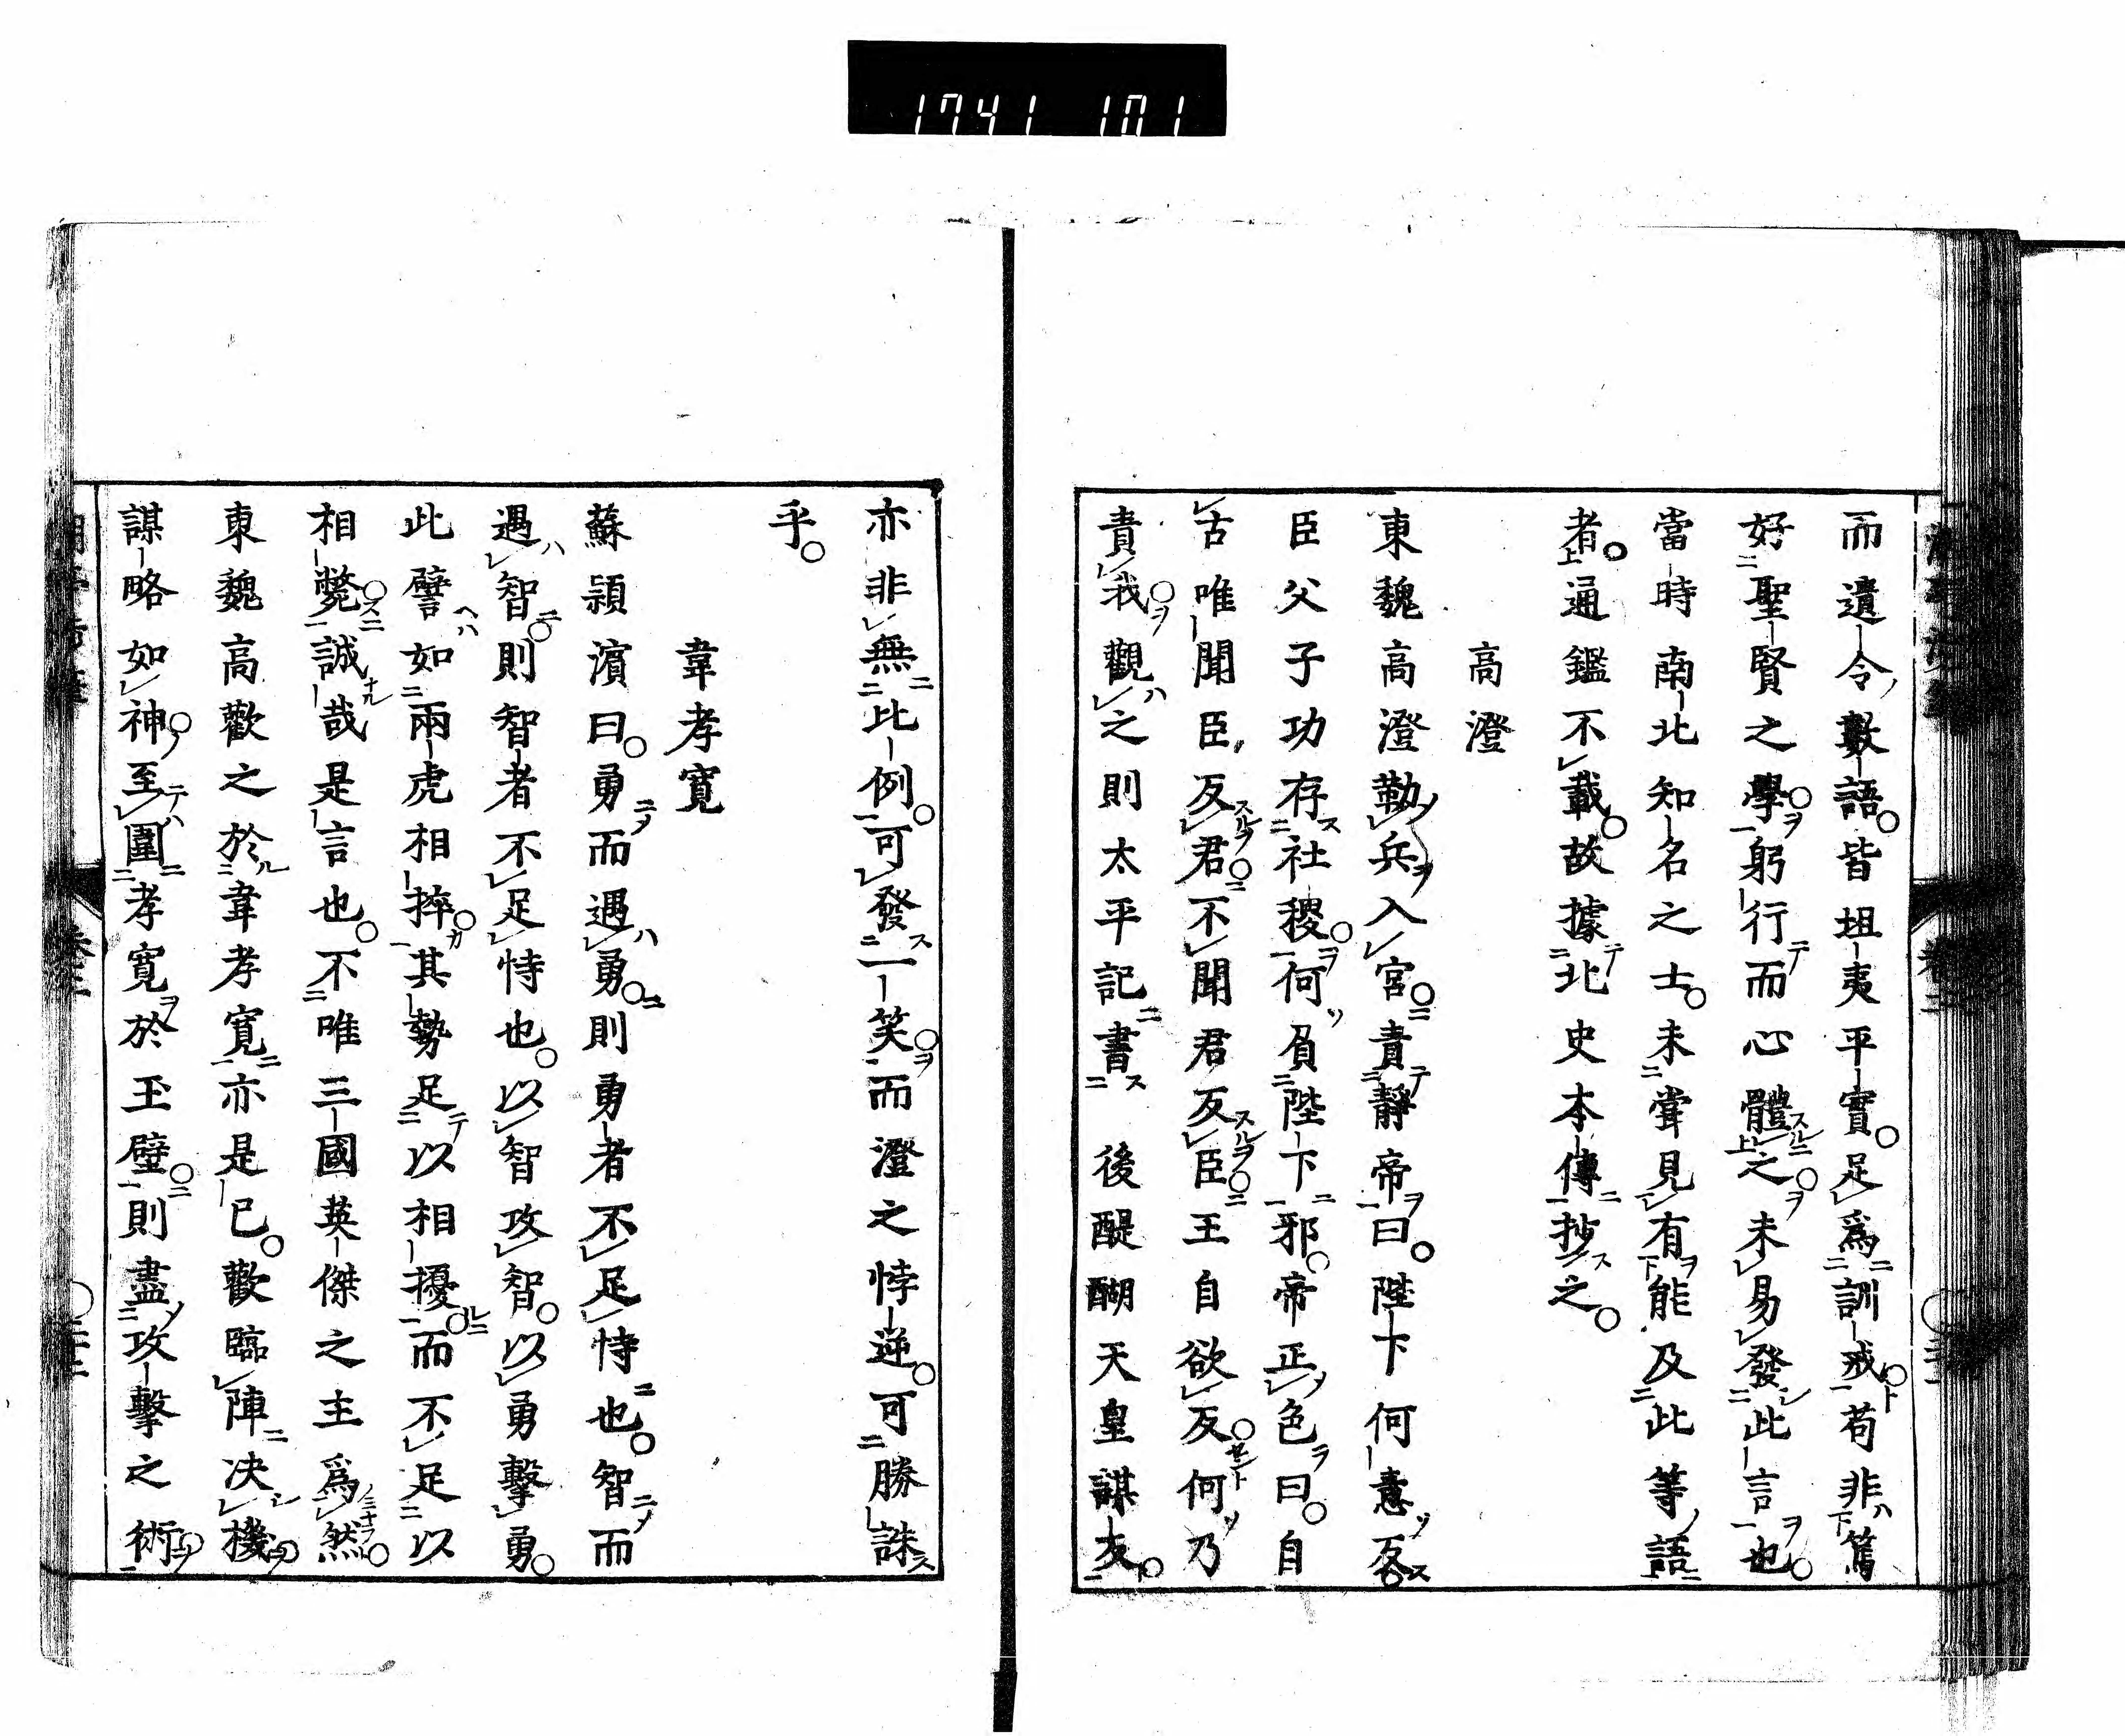 1741 101
而遺令數語皆坦夷平實足爲訓戒苟非篤
好聖賢之學躬行而心體之未易發此言也
當時南北知名之士未嘗見有能及此等語
者通鑑不載故據北史本傳抄之
高澄
東魏高澄勒兵入宮責靜帝曰陛下何意反
臣父子功存社稷何負陛下邪帝正色曰自
古唯聞臣反君不聞君反臣王自欲反何乃
責我觀之則太平記書 後醍醐天皇謀反
亦非無比例可發一笑而澄之悖逆可勝誅
乎
韋孝寬
蘇潁濱曰勇而遇勇則勇者不足恃也智而
遇智則智者不足恃也以智攻智以勇擊勇
此譬如兩虎相捽其勢足以相擾而不足以
相斃誠哉是言也不唯三國英傑之主爲然
東魏高歡之於韋孝寬亦是已歡臨陣决機
謀略如神至圍孝寬於玉壁則盡攻擊之術